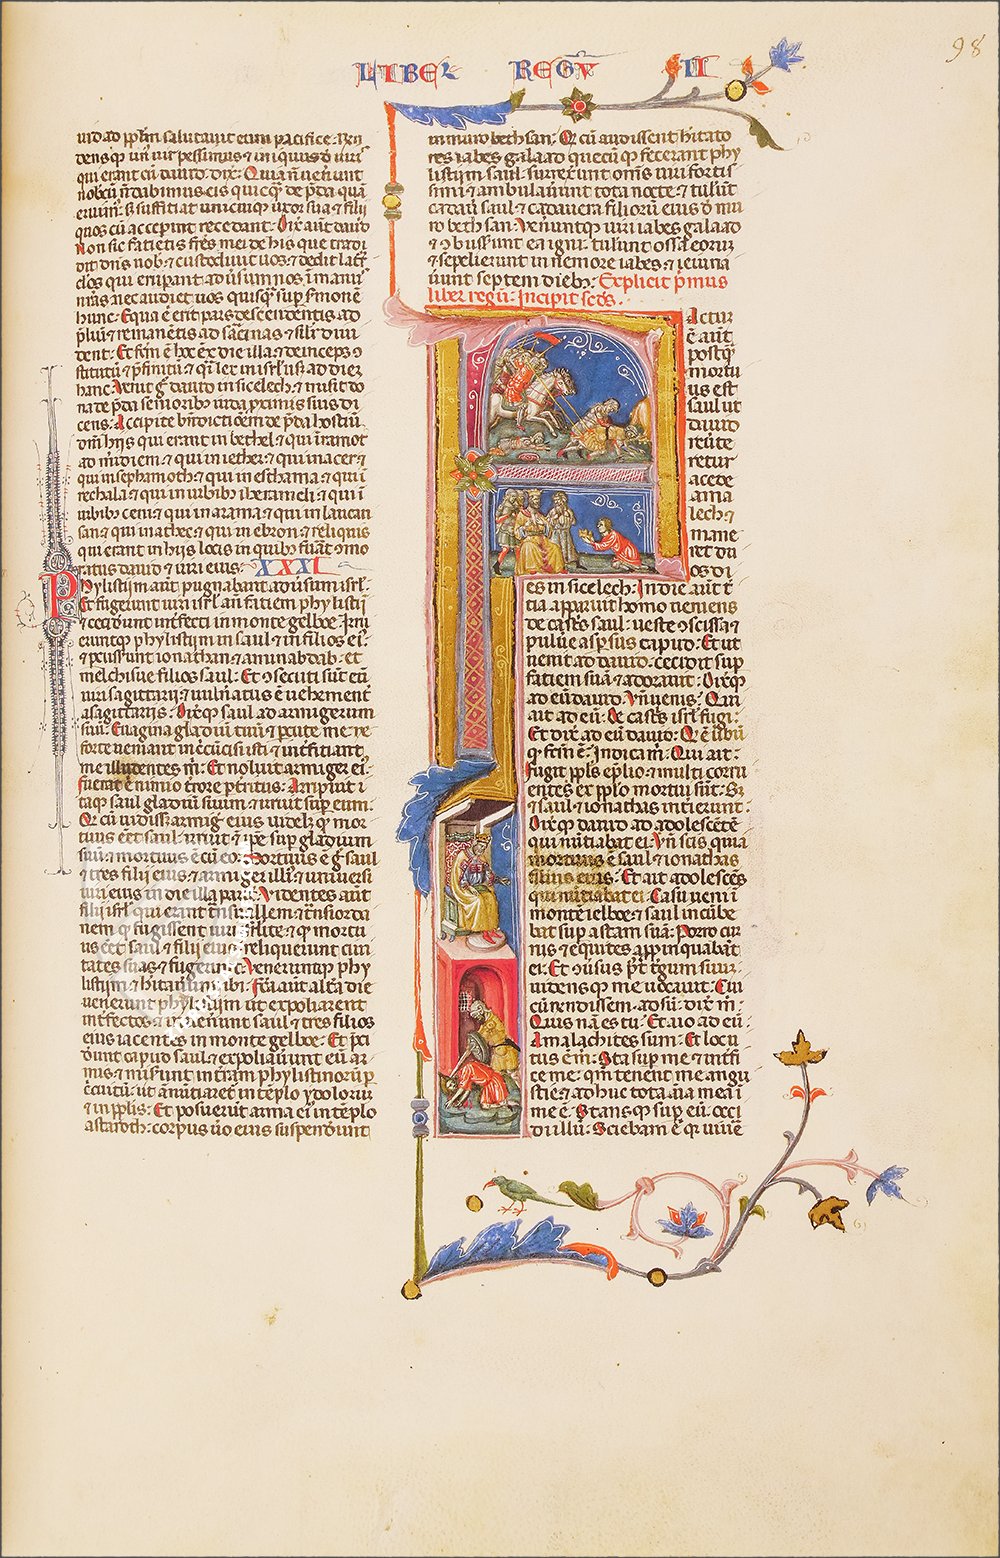 LIBER REGŪ II
98
uid ad pplm salutauit eum pacifice. Ren
densq; un' uir pessimus & iniquus d' uiris
qui erant cū dauid. dix. Quia n̄ uenerunt
nobcū n̄ dabimus eis quicq; de p̄da quā
eruim'. s; sufficiat unicuiq; uxor sua & filii
quos cū acceperint recedant. Dix aut dauid
Non sic facietis fr̄es mei de his que tradi
dit dn̄s nob' & custodiuit uos & dedit latr̄
clos qui eruperant aduersum nos ī manus
n̄ras nec audiet uos quisq; sup sermone
hunc. Equa e' erit pars descendentis ad
p̄lium & remanentis ad sarcinas & simil' diui
dent. Et fcm̄ e' hoc ex die illa & deinceps 9
stitutū & p̄finitū & q; lex in isrl' usq; ad diem
hanc. Venit g̊ dauid in sicelech & misit do
na de p̄da senioribus iuda proximis suis di
cens. Accipite bn̄dictiōem de p̄da hostiū
dn̄i hiis qui erant in bethel & qui ī ramoth
ad m̄idiem & qui in iether & qui in aroer &
qui in sephamoth & qui in esthama & qui ī
rechala & qui in urbibus ierameli & qui ī
urbibus ceni & qui in arama & qui in lacu
asan & qui in athec & qui in ebron & reliquis
qui erant in hiis locis in quibus fuāt 9mo
ratus dauid & uiri eius. XXXI
Phylistiim aut pugnabant aduersum isrl'.
Et fugerunt uiri isrl' an̄ faciem phylistiī
& ceciderunt interfecti in monte gelboe. Irru
eruntq; phylistiim in saul & in filios ei'
& percusserunt ionathan & aminadab & et
melchisue filios saul. Et 9secuti sunt eū
uiri sagittarii & uulneratus e' uehement
a sagittariis. Dixq; saul ad armigerum
suū. Euagina gladiū tuū & percute me ne
forte ueniant incircūcisi isti & interficiant
me illudentes m̄. Et noluit armiger ei'.
fuerat e' nimio terrore perritus. Arripuit i
taq; saul gladium suum & irruit super eum.
Qd cū uidisset armig' eius uidel; q; mor
tuus eet saul. irruit & ipe super gladium
suū & mortuus e' cū eo. Mortuus e' g̊ saul
& tres filii eius & armiger illi' & uniuersi
uiri eius in die illa pariter. Videntes aut
filii isrl' qui erant trans uallem & trans iorda
nem q; fugissent uiri isrlite & q; mortu
us eet saul & filii eius reliquerunt ciui
tates suas & fugerunt. Veneruntq; phy
listiim & hitauerunt ibi. Fcā aut altera die
uenerunt phylistiim ut expoliarent
interfectos & inuenerunt saul & tres filios
eius iacentes in monte gelboe. Et preci
derunt capud saul & expoliauerunt eū ar
mis & miserunt in terram phylistinorū per
circuitū. ut annuntiaret' in templo ydolorum
& in populis. Et posuerunt arma ei' in templo
astaroth. corpus uo eius suspenderunt
in muro bethsan. Qd cū audissent hitato
res iabes galaad quecūq; fecerant phy
listiim saul. surrexerunt omēs uiri fortis
simi & ambulauerunt tota nocte. & tulerunt
cadauer saul & cadauera filiorū eius d' mu
ro bethsan. Veneruntq; uiri iabes galaad
& 9busserunt ea igni. tulerunt ossa eorum
& sepelierunt in nemore iabes. & ieiuna
uerunt septem dieb;. Explicit p̄mus
liber regū. Incipit scds.
Factum
e' aut
postq;
mortu
us est
saul ut
dauid
reuerte
retur
a cede
ama
lech. &
mane
ret du
os di
es in sicelech. In die aut t'
tia apparuit homo ueniens
de castris saul. ueste 9scissa &
puluere aspersus capud. Et ut
uenit ad dauid. cecidit super
faciem suā & adorauit. Dixq;
ad eū dauid. Vn̄ uenis. Qui
ait ad eū. De castris isrl' fugi.
Et dix ad eū dauid. Qd e' uerbū
q; fcm̄ e'. Indica m̄. Qui ait.
Fugit ppls e prelio. & multi corru
entes ex pplo mortui sunt. Sz
& saul & ionathas interierunt.
Dixq; dauid ad adolescētē
qui nuntiabat ei. Vn̄ scis quia
mortuus e' saul & ionathas
filius eius. Et ait adolescēs
qui nuntiabat ei. Casu ueni ī
monte ielboe. & saul incūbe
bat super astam suā. Porro cur
rus & equites appropinquabāt
ei. Et 9uersus post tergum suū.
uidensq; me uocauit. Cui
cū rendissem. adsū. dix m̄.
Quis nā es tu. Et aio ad eū.
Amalachites sum. Et locu
tus e' m̄. Sta super me & interfi
ce me. qm̄ tenent me angu
stie. & adhuc tota aīa mea ī
me e'. Stansq; super eū. occi
di illū. Sciebam e' q; uiuere